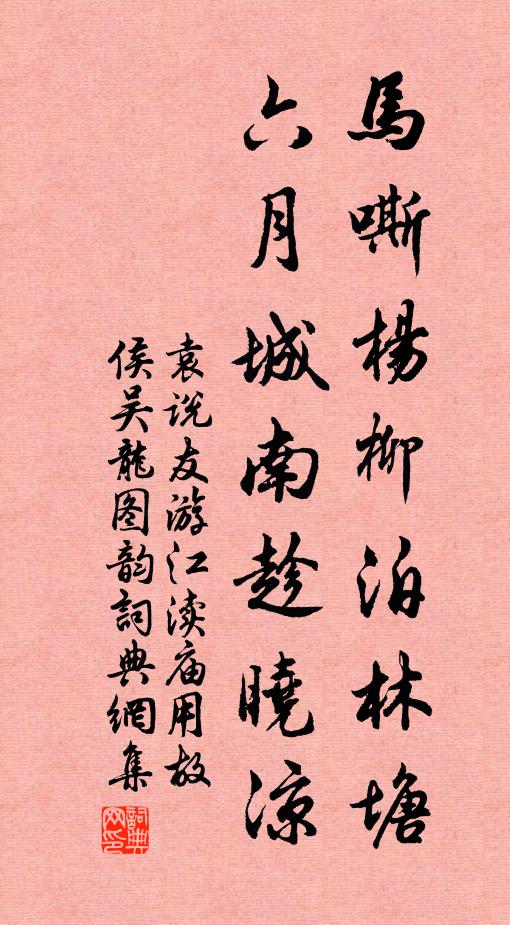 馬嘶楊柳泊林塘
六月城南趁曉涼
袁说友游江渎庙用故
侯吴龍图韵詞典網集
詞典网印